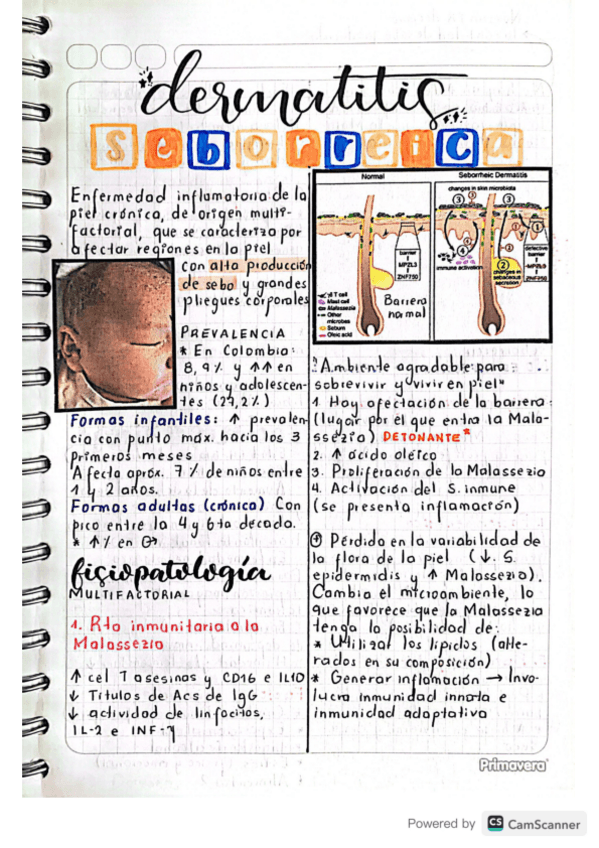 dermatitis
Seborreica
Enfermedad inflamatoria de la
piel crónica, de origen multi-
factorial, que se caracteriza por
afectar regiones en la piel
con alta producción
de sebo y grandes
pliegues corporales
PREVALENCIA
* En Colombia:
8,9% y ↑↑ en
niños y adolescen-
tes (27,2%)
Formas infantiles: ↑ prevalen-
cia con punto máx. hacia los 3
primeros meses
Afecta aprox. 7% de niños entre
1 y 2 años.
Formas adultas (crónica) Con
pico entre la 4 y 6ta decada.
* ↑% en ♂
fisiopatología
MULTIFACTORIAL
1. Rta inmunitaria a la
Malassezia
↑ cel T asesinas y CD16 e IL10
↓ Titulos de Acs de IgG
↓ actividad de linfocitos,
IL-2 e INF-γ
Normal
Seborrheic Dermatitis
changes in skin microbiota
3
3
1
1
2
4
barrier
MPZL3
ZNF750
defective
barrier
MPZL3
ZNF750
immune activation
changes in
sebaceous
secretion
γδ T cell
Mast cell
Malassezia
Other
microbes
Sebum
Oleic acid
Barrera
normal
"Ambiente agradable para
sobrevivir y vivir en piel"
1. Hay afectación de la barrera
(lugar por el que entra la Mala-
ssezia) DETONANTE*
2. ↑ ácido oléico
3. Proliferación de la Malassezia
4. Activación del S. inmune
(se presenta inflamación)
Pérdida en la variabilidad de
la flora de la piel (↓ S.
epidermidis y ↑ Malassezia).
Cambia el microambiente, lo
que favorece que la Malassezia
tenga la posibilidad de:
* Utilizar los lípidos (alte-
rados en su composición)
* Generar inflamación → Invo-
lucra inmunidad innata e
inmunidad adaptativa
Primavera
Powered by CS CamScanner